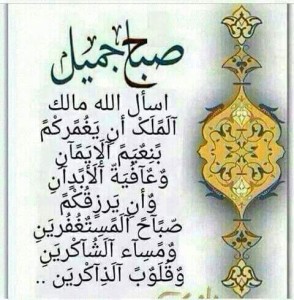 صباح جميل
اسأل الله مالك
آلَمًلَکْ أن يَغْمُرکْمً
بًنعٌيَمً آلَإيَمًآنِ
وٌعٌآفُيَةّ آلَأبًدٍآنِ
وٌأن يَرزٍقُکْمً
صّبًآحً آلَمًسِتٌغْفُريَنِ
وٌمًسِآء آلَشُآکْريَنِ
وٌقُلَوٌبً آلَذِآکْريَنِ ..